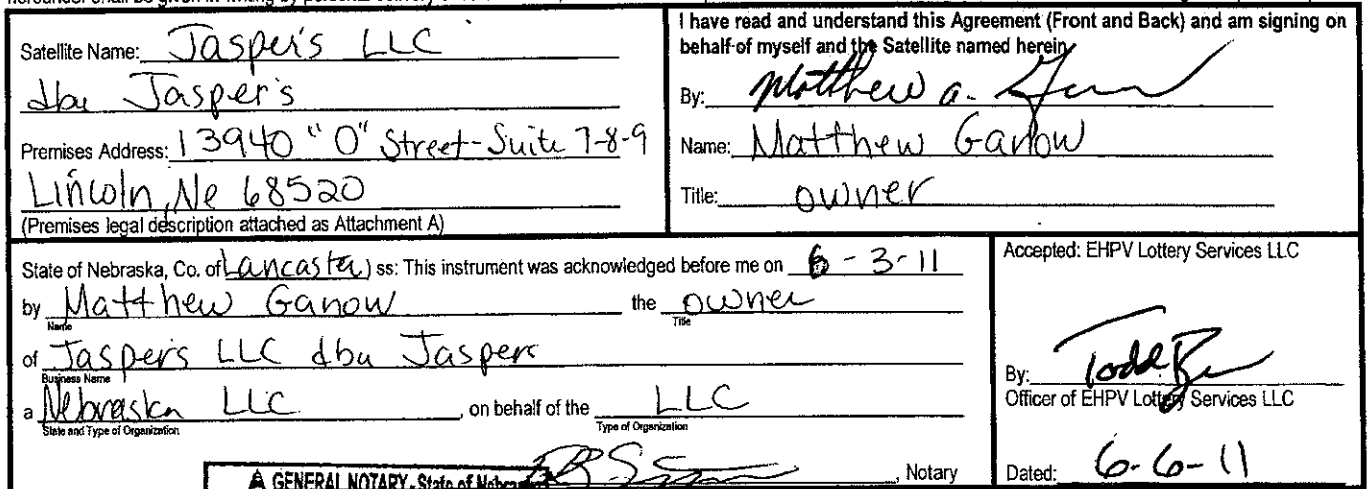 Satellite Name: Jasper's LLC
dba Jasper's
Premises Address: 13940 "O" Street-Suite 7-8-9
Lincoln, Ne 68520
(Premises legal description attached as Attachment A)
I have read and understand this Agreement (Front and Back) and am signing on
behalf of myself and the Satellite named herein
By: Matthew a.
Name: Matthew Ganow
Title: owner
State of Nebraska, Co. of Lancaster) ss: This instrument was acknowledged before me on 6-3-11
by Matthew Ganow the owner
Name Title
of Jaspers LLC dba Jaspers
Business Name
a Nebraska LLC, on behalf of the LLC
State and Type of Organization Type of Organization
GENERAL NOTARY-State of Nebraska
, Notary
Accepted: EHPV Lottery Services LLC
By: Todd
Officer of EHPV Lottery Services LLC
Dated: 6-6-11